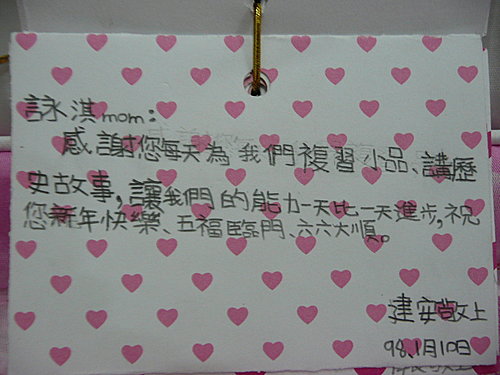 詠淇mom：
感謝您每天為我們複習小品、講歷
史故事，讓我們的能力一天比一天進步，祝
您新年快樂、五福臨門、六六大順。
建安敬上
98.1月10日